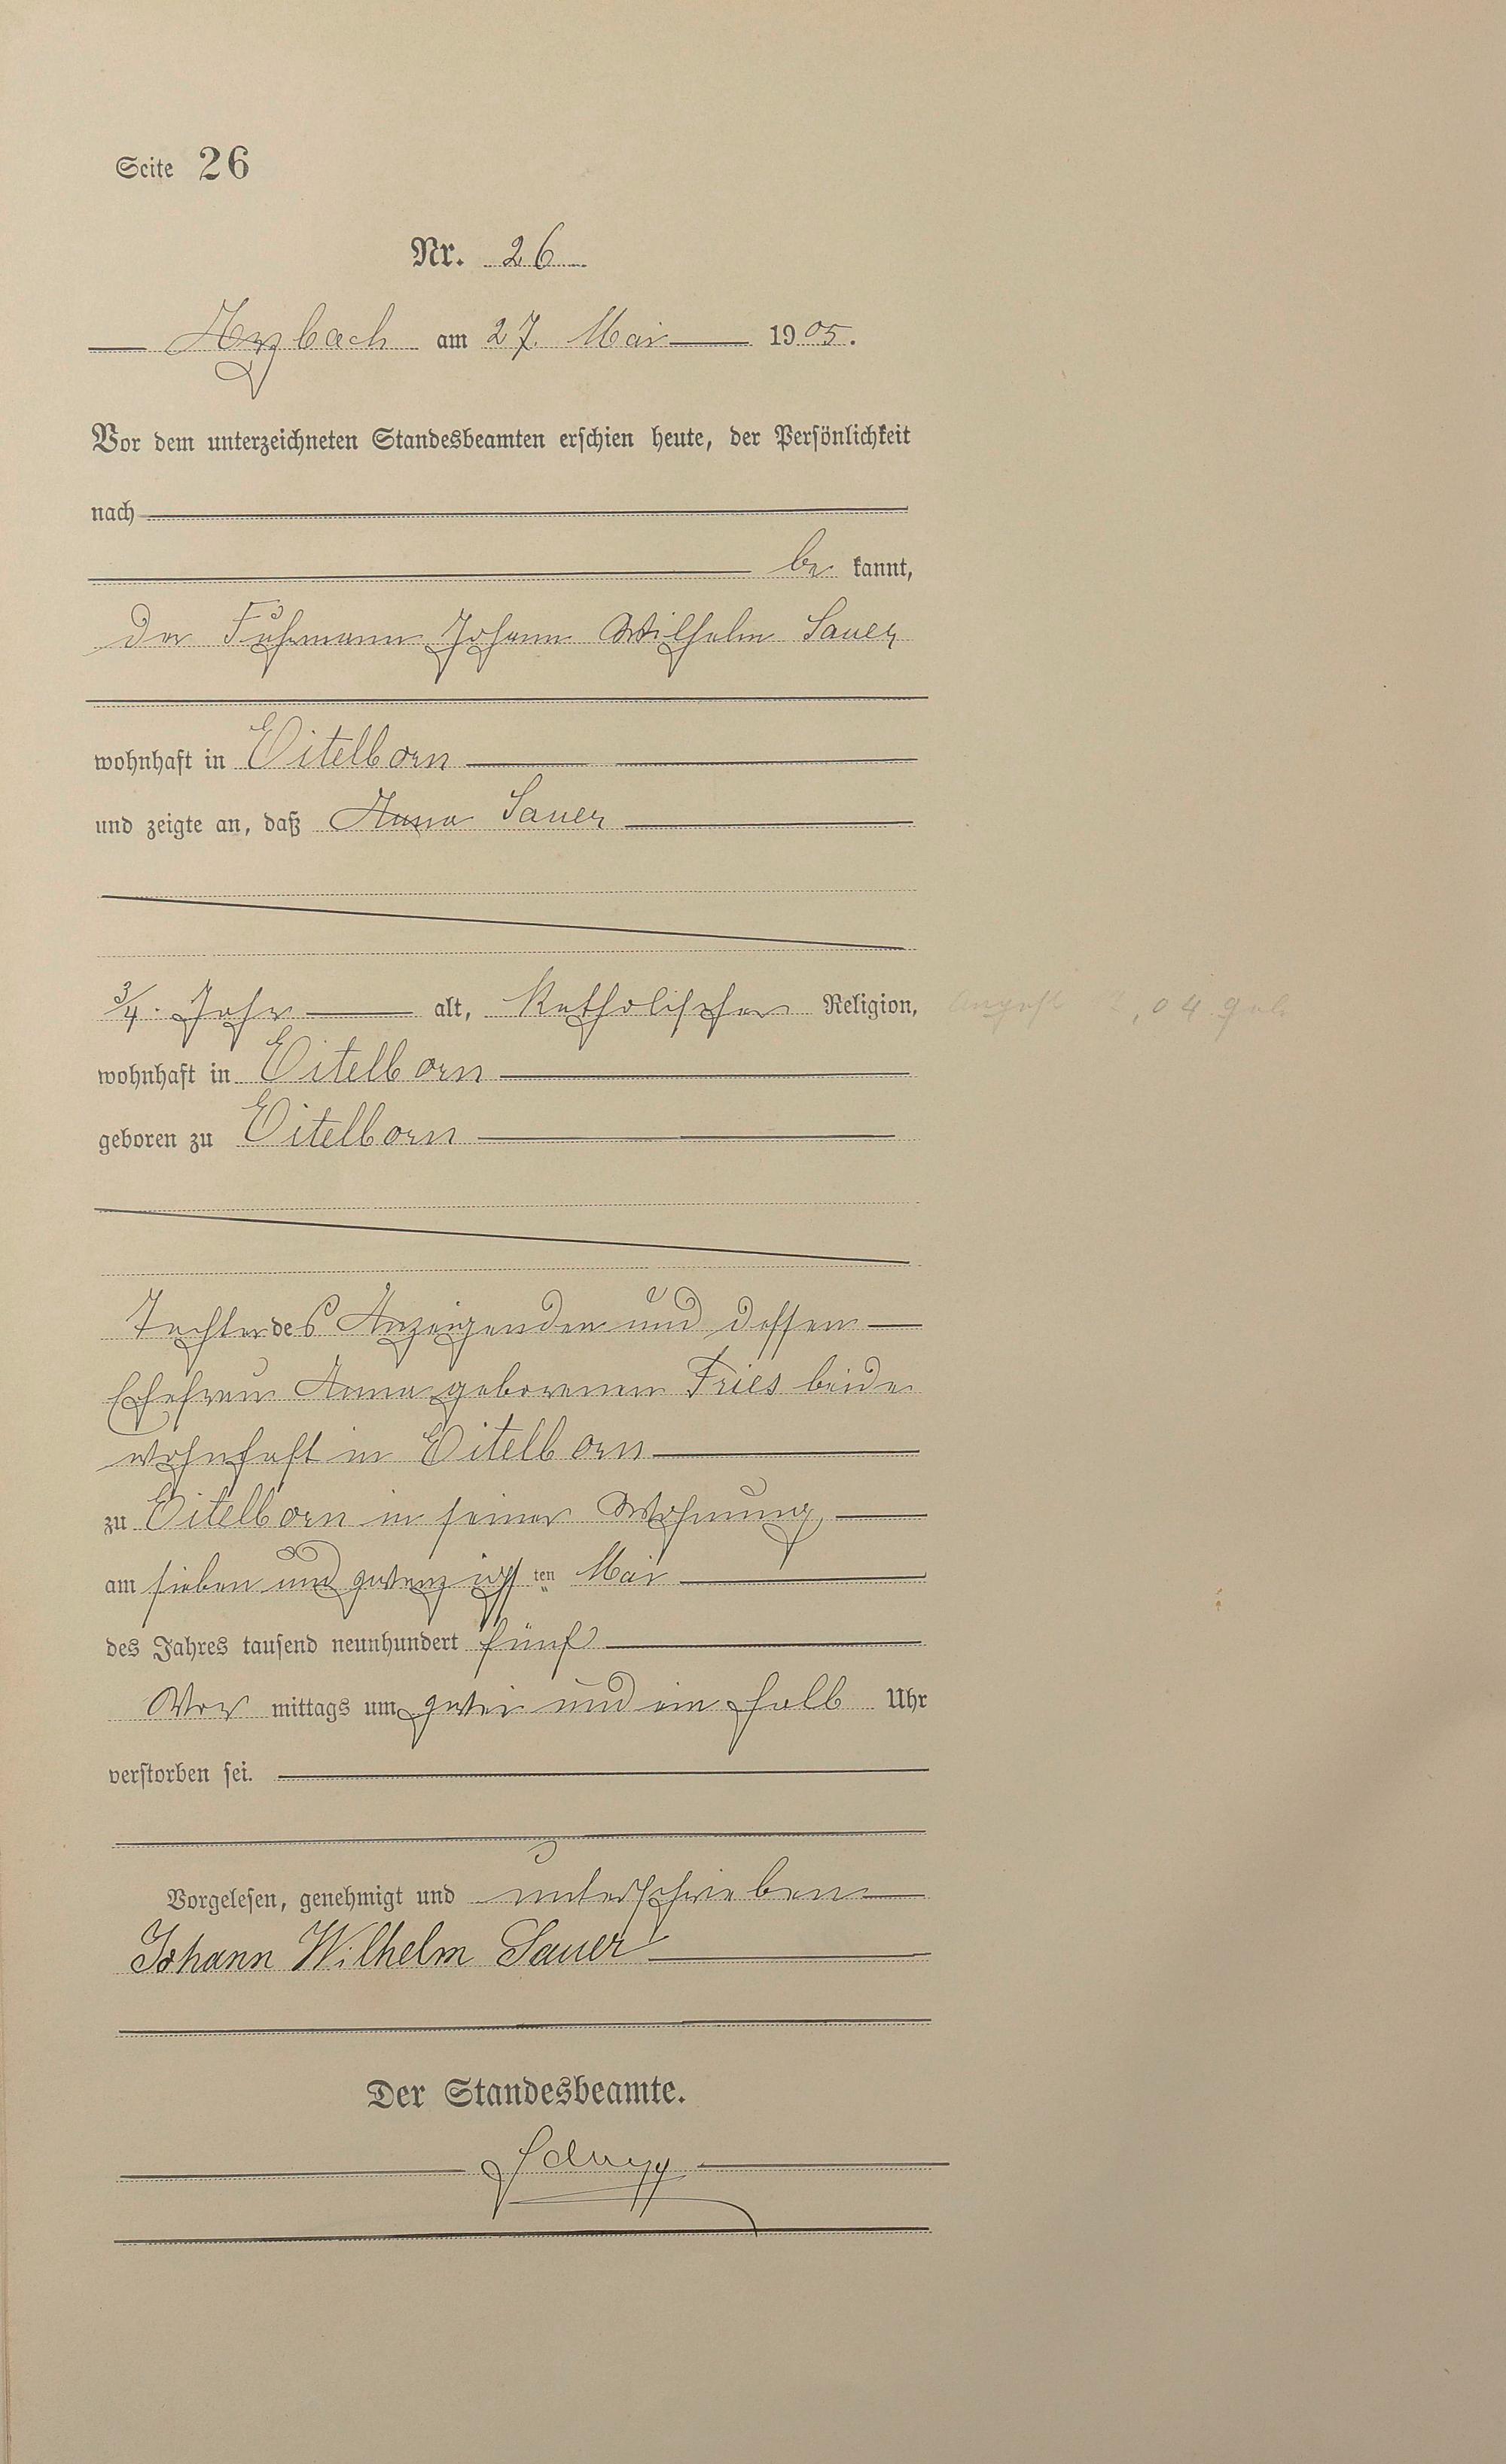 Seite 26
Nr. 26
Arzbach am 27. Mai 1905.
Vor dem unterzeichneten Standesbeamten erschien heute, der Persönlichkeit
nach
be kannt,
der Fuhrmann Johann Wilhelm Sauer
wohnhaft in Eitelborn
und zeigte an, daß Anna Sauer
3/4 Jahr alt, Katholischer Religion,
wohnhaft in Eitelborn
geboren zu Eitelborn
Tochter des Anzeigenden und dessen
Ehefrau Anna geborenen Fries beide
wohnhaft in Eitelborn
zu Eitelborn in seiner Wohnung,
am sieben und zwanzigsten Mai
des Jahres tausend neunhundert fünf
Vor mittags um zwei und ein halb Uhr
verstorben sei.
Vorgelesen, genehmigt und unterschrieben
Johann Wilhelm Sauer
Der Standesbeamte.